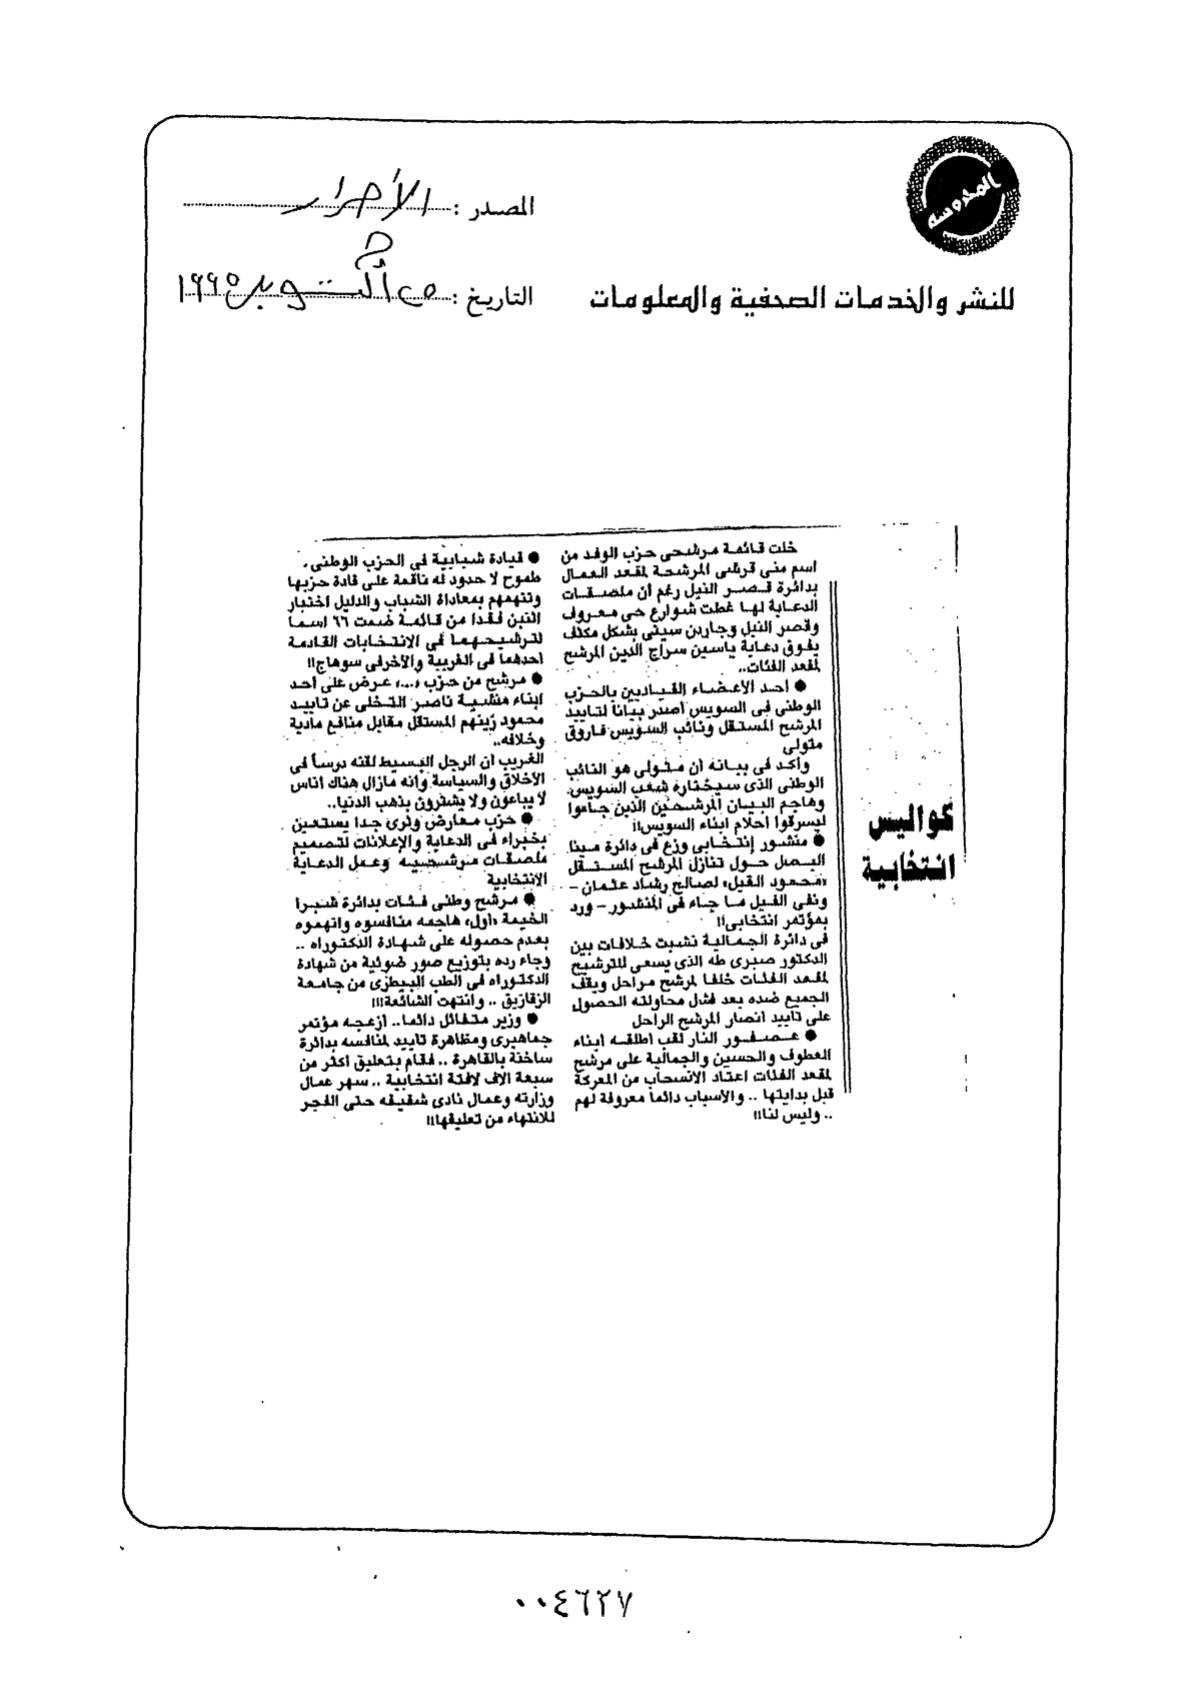 المحروسة
للنشر والخدمات الصحفية والمعلومات
المصدر : الأحرار
التاريخ : ٢٥ أكتوبر ١٩٩٥
كواليس
انتخابية
خلت قائمة مرشحى حزب الوفد من
اسم منى قرشى المرشحة لمقعد العمال
بدائرة قصر النيل رغم أن ملصقات
الدعاية لها غطت شوارع حى معروف
وقصر النيل وجاردن سيتى بشكل مكثف
يفوق دعاية ياسين سراج الدين المرشح
لمقعد الفئات..
● أحد الأعضاء القياديين بالحزب
الوطنى فى السويس أصدر بياناً لتاييد
المرشح المستقل ونائب السويس فاروق
متولى
وأكد فى بيانه أن متولى هو النائب
الوطنى الذى سيختاره شعب السويس
وهاجم البيان المرشحين الذين جاءوا
ليسرقوا احلام ابناء السويس!!
● منشور إنتخابى وزع فى دائرة مينا
البصل حول تنازل المرشح المستقل
«محمود الفيل» لصالح رشاد عثمان -
ونفى الفيل ما جاء فى المنشور - ورد
بمؤتمر انتخابى!!
فى دائرة الجمالية نشبت خلافات بين
الدكتور صبرى طه الذى يسعى للترشيح
لمقعد الفئات خلفا لمرشح مراحل ويقف
الجميع ضده بعد فشل محاولته الحصول
على تاييد انصار المرشح الراحل
● عصفور النار لقب اطلقه ابناء
العطوف والحسين والجمالية على مرشح
لمقعد الفئات اعتاد الانسحاب من المعركة
قبل بدايتها .. والاسباب دائما معروفة لهم
.. وليس لنا!!
● قيادة شبابية فى الحزب الوطنى،
طموح لا حدود له ناقمة على قادة حزبها
وتتهمهم بمعاداة الشباب والدليل اختيار
اثنين فقدا من قائمة ضمت ٦٦ اسما
لترشيحهما فى الانتخابات القادمة
احدهما فى الغربية والآخر فى سوهاج!!
● مرشح من حزب «...» عرض على احد
ابناء منشية ناصر التخلى عن تاييد
محمود زينهم المستقل مقابل منافع مادية
وخلافه..
الغريب ان الرجل البسيط لقنه درساً فى
الأخلاق والسياسة وانه مازال هناك اناس
لا يباعون ولا يشترون بذهب الدنيا..
● حزب معارض وثرى جدا يستعين
بخبراء فى الدعاية والإعلانات لتصميم
ملصقات مرشحيه وعمل الدعاية
الانتخابية
● مرشح وطنى فئات بدائرة شبرا
الخيمة «اول» هاجمه منافسوه واتهموه
بعدم حصوله على شهادة الدكتوراه ..
وجاء رده بتوزيع صور ضوئية من شهادة
الدكتوراه فى الطب البيطرى من جامعة
الزقازيق .. وانتهت الشائعة!!!
● وزير متفائل دائما.. ازعجه مؤتمر
جماهيرى ومظاهرة تاييد لمنافسه بدائرة
ساخنة بالقاهرة .. فقام بتعليق اكثر من
سبعة الاف لافتة انتخابية .. سهر عمال
وزارته وعمال نادى شقيقه حتى الفجر
للانتهاء من تعليقها!!!
٠٠٤٦٢٧